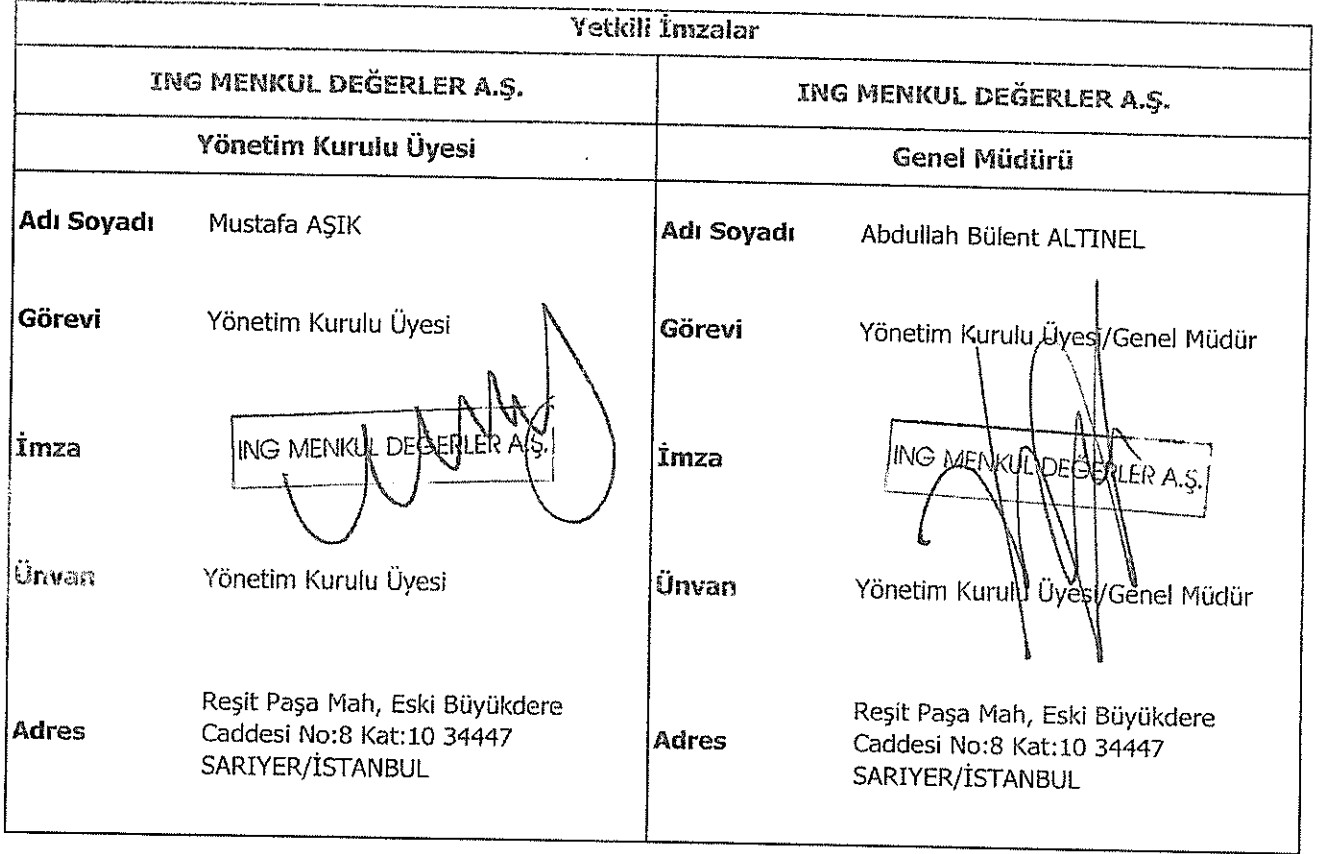 Yetkili İmzalar
ING MENKUL DEĞERLER A.Ş.
ING MENKUL DEĞERLER A.Ş.
Yönetim Kurulu Üyesi
Genel Müdürü
Adı Soyadı Mustafa AŞIK
Görevi Yönetim Kurulu Üyesi
İmza ING MENKUL DEĞERLER A.Ş.
Ünvan Yönetim Kurulu Üyesi
Adres Reşit Paşa Mah, Eski Büyükdere
Caddesi No:8 Kat:10 34447
SARIYER/İSTANBUL
Adı Soyadı Abdullah Bülent ALTINEL
Görevi Yönetim Kurulu Üyesi/Genel Müdür
İmza ING MENKUL DEĞERLER A.Ş.
Ünvan Yönetim Kurulu Üyesi/Genel Müdür
Adres Reşit Paşa Mah, Eski Büyükdere
Caddesi No:8 Kat:10 34447
SARIYER/İSTANBUL